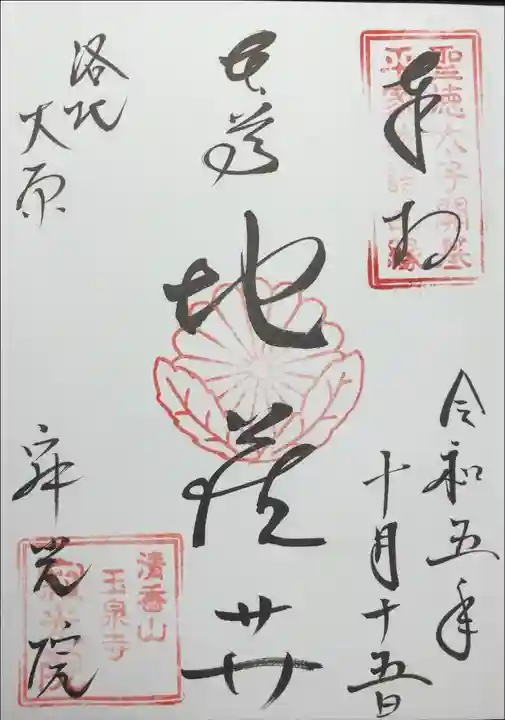 奉拝
聖徳太子開基
平家物語由縁
令和五年
十月十五日
本尊
地蔵卄
洛北
大原
寂光院
清香山
玉泉寺
寂光院